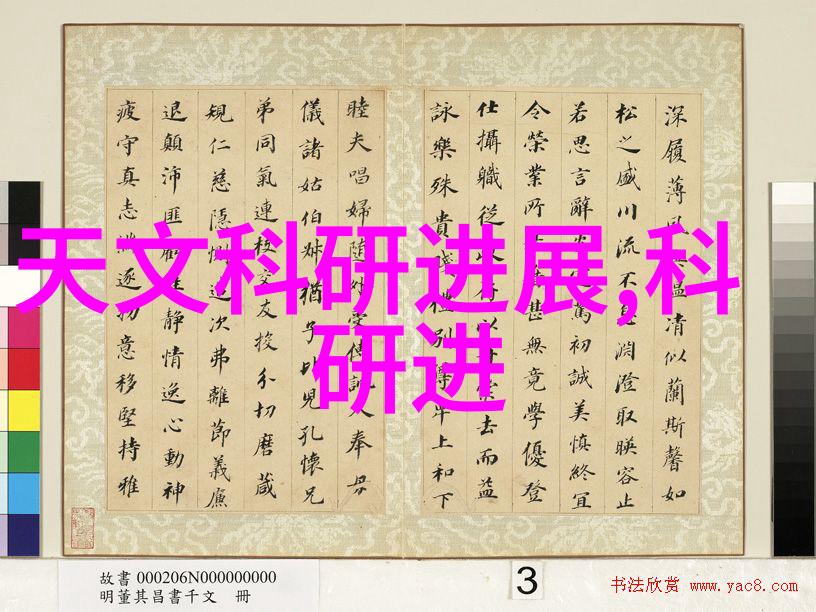 天文科研进展,科
研进
深履薄溫清似蘭斯馨如
松之盛川流不息淵澄取暎容止
若思言辭篤初誠美慎終宜
令榮業所甚無竟學優登
仕攝職從去而益
詠樂殊貴賤禮別尊卑上和下
睦夫唱婦隨外受傅訓入奉母
儀諸姑伯叔猶子比兒孔懷兄
弟同氣連枝交友投分切磨箴
規仁慈隱惻造次弗離節義廉
退顛沛匪虧性靜情逸心動神
疲守真志滿逐物意移堅持雅
故書 000206N000000000
明董其昌書千文 冊
3
书法欣赏 www.yac8.com